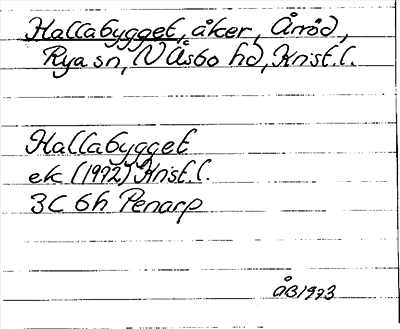 Hallabygget, åker, Årröd,
Rya sn, N Åsbo hd, Krist. l.
Hallabygget
ek (1972) Krist. l.
3C 6h Penarp
ÅB 1973